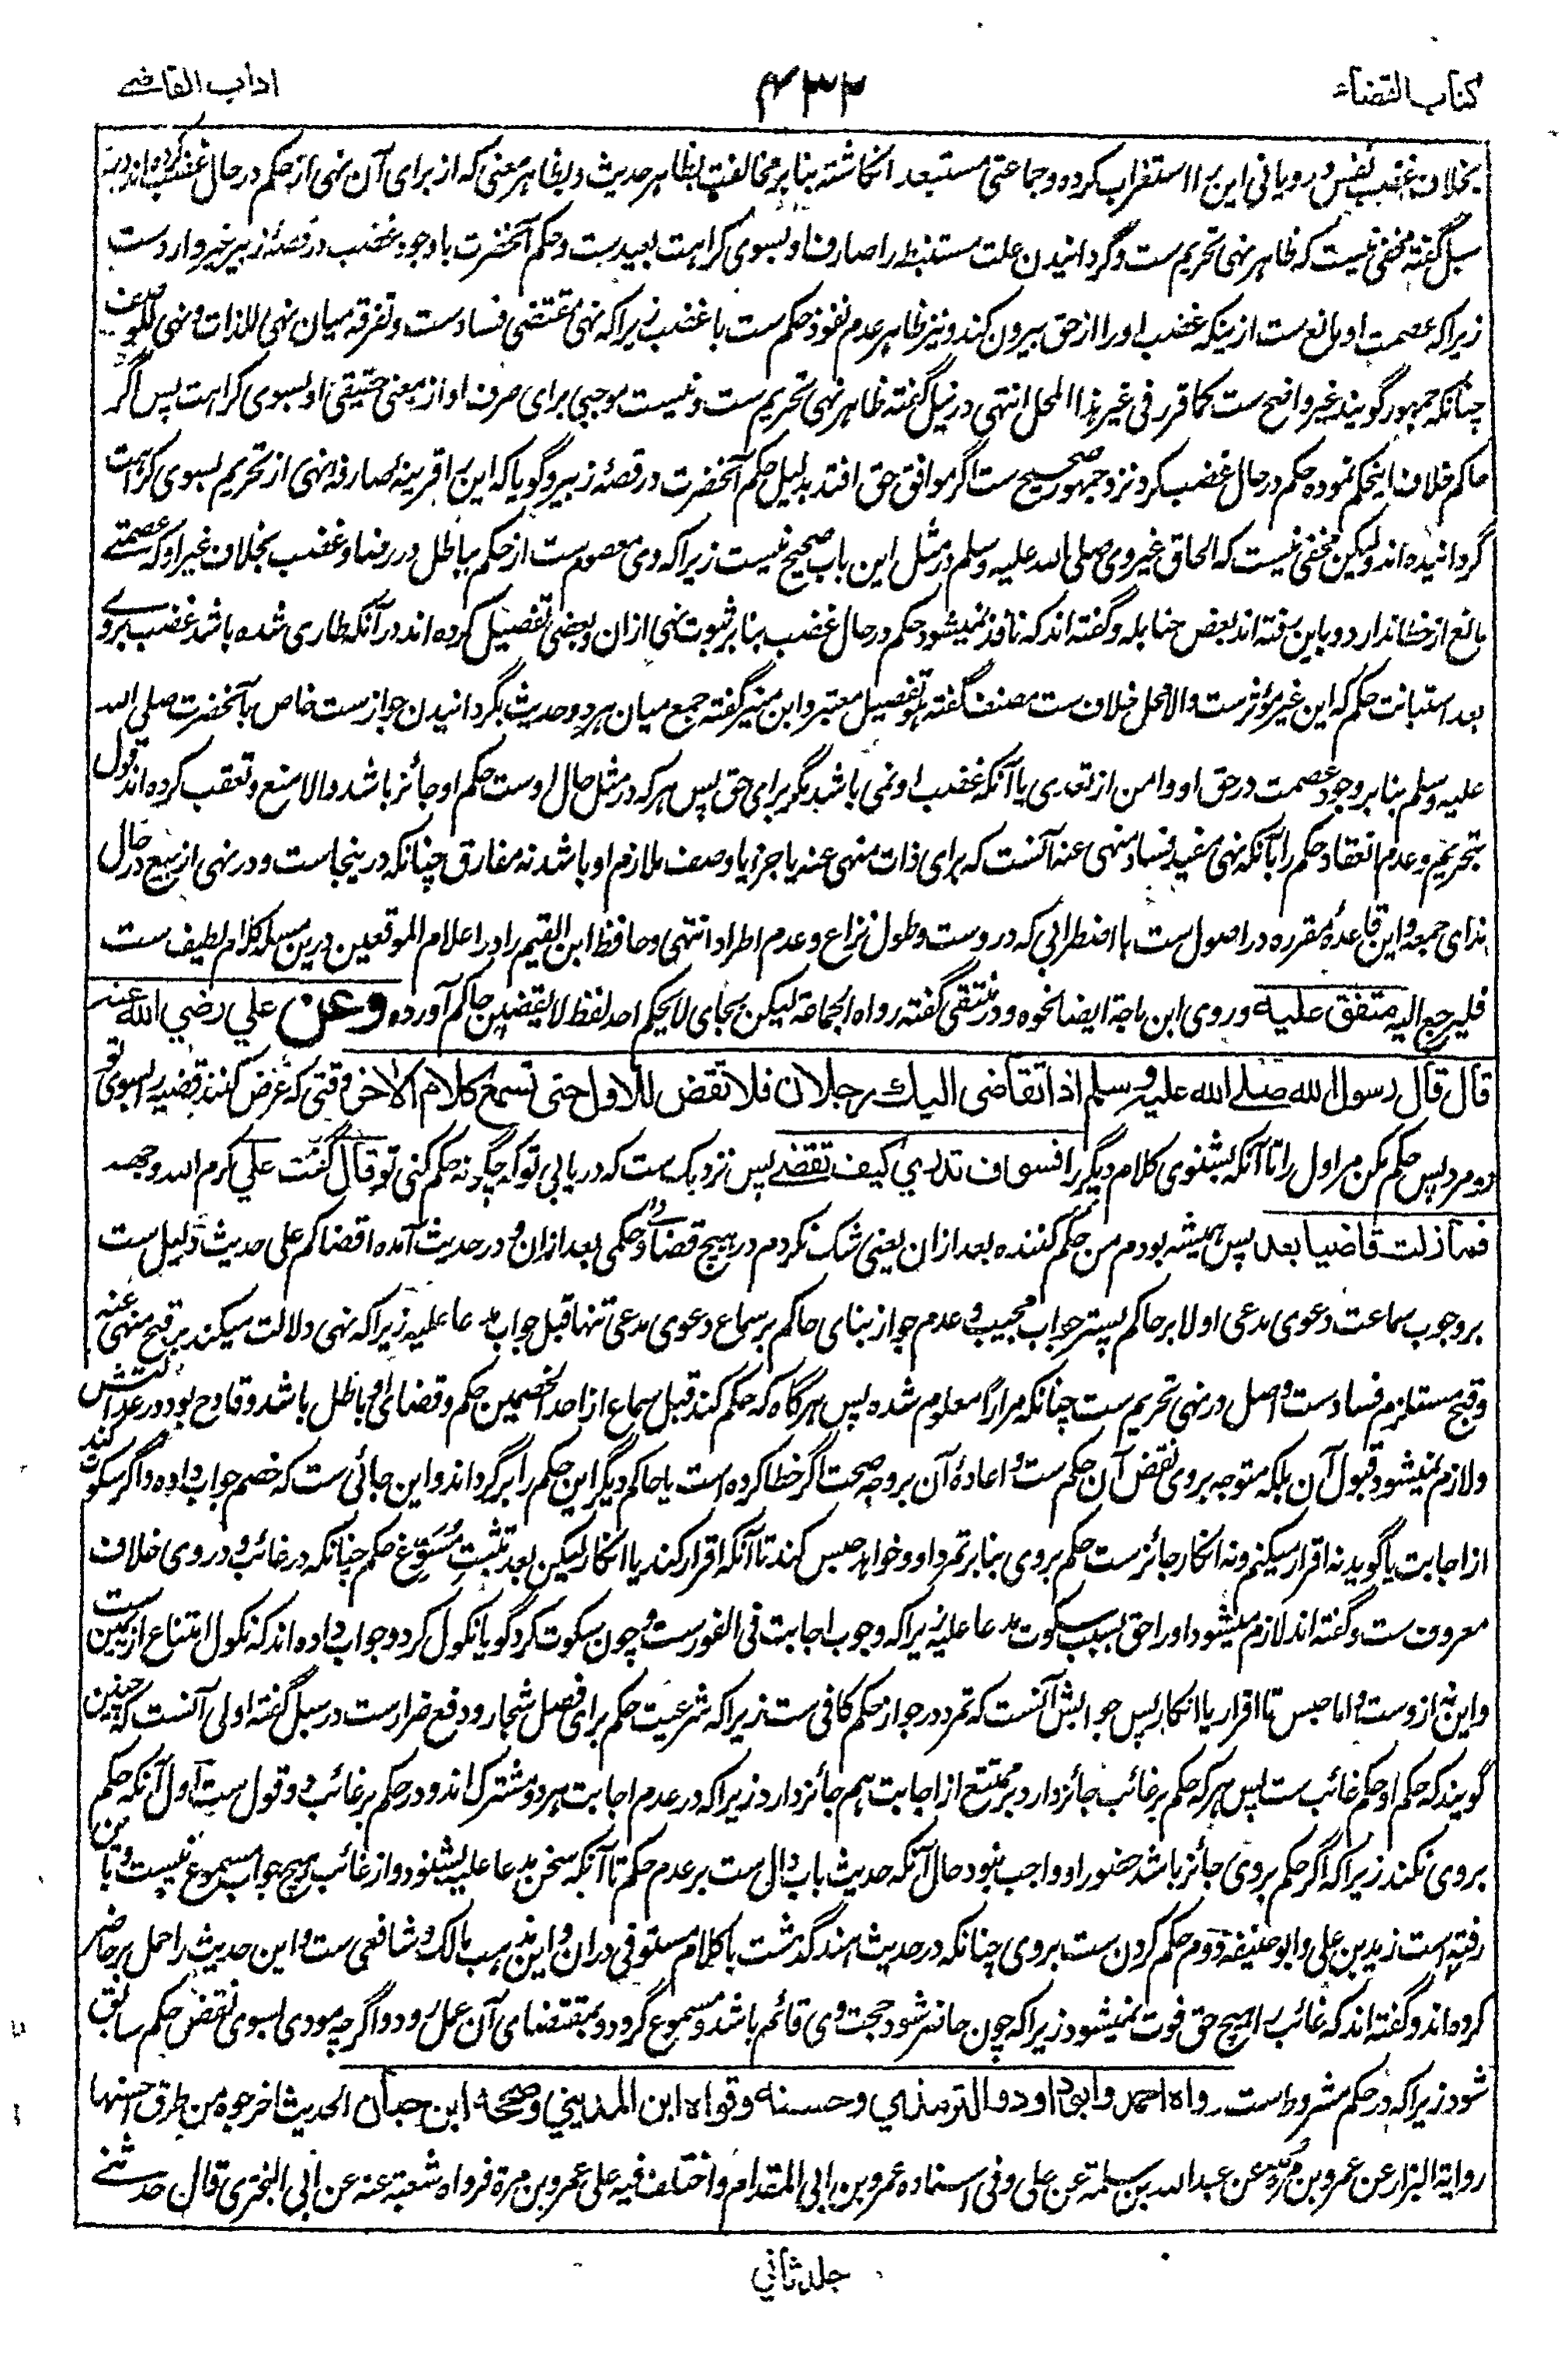 کتاب القضاء
۴۳۲
اداب القاضے
بخلاف غضب نفس و رویانی این را استغراب کرده و جماعتی مستبعد انگاشته بنا بر مخالفت بظاهر حدیث و بظاهر معنی که از برای آن نهی از حکم در حال غضب کرده اند در
سبل گفته مخفی نیست که ظاهر نهی تحریم ست و گردانیدن علت مستنبطه را صارف او بسوی کراهت بعید ست و حکم آنحضرت با وجود غضب در قصۂ زبیر غیر وارد ست
زیرا که عصمت او مانع ست ازینکه غضب او را از حق بیرون کند و نیز ظاهر عدم نفوذ حکم ست با غضب زیرا که نهی مقتضی فساد ست و تفرقه میان نهی للذات و نهی للوصف
چنانکه جمهور گویند غیر واضح ست کما قرر فی غیر هذا المحل انتهی در نیل گفته ظاهر نهی تحریم ست و نیست موجبی برای صرف او از معنی حقیقی او بسوی کراهت پس اگر
حاکم خلاف اینحکم نموده حکم در حال غضب کرد نزد جمهور صحیح ست اگر موافق حق افتد بدلیل حکم آنحضرت در قصۂ زبیر و گویا که این را قرینۂ صارفه نهی از تحریم بسوی کراهت
گردانیده اند ولیکن مخفی نیست که الحاق غیر وی صلی الله علیه وسلم در مثل این باب صحیح نیست زیرا که وی معصوم ست از حکم بباطل در رضا و غضب بخلاف غیر او که عصمتے
مانع از خطا ندارد و باین رفته اند بعض حنابله و گفته اند که نافذ نمیشود حکم در حال غضب بنا بر ثبوت نهی ازان و بعضی تفصیل کرده اند در آنکه طاری شده باشد غضب بروے
بعد استبانت حکم که این غیر مؤثر ست والا محل خلاف ست مصنف گفته هو تفصیل معتبر و ابن منیر گفته جمع میان هر دو حدیث بگردانیدن جواز ست خاص بآنحضرت صلی الله
علیه وسلم بنا بر وجود عصمت در حق او و امن از تعدی یا آنکه غضب او نمی باشد مگر برای حق پس هر که در مثل حال اوست حکم او جائز باشد والا منع و تعقب کرده اند قول
بتحریم و عدم انعقاد حکم را بآنکه نهی مفید فساد منهی عنه آنست که برای ذات منهی عنه یا جزء یا وصف ملازم او باشد نه مفارق چنانکه درینجاست و در نهی از بیع در حال
ندای جمعه و این قاعدۂ مقرره در اصول ست با اضطرابی که در وست و طول نزاع و عدم اطراد انتهی و حافظ ابن القیم را در اعلام الموقعین درین مسئله کلام لطیف ست
فلیرجع الیه متفق علیه و روی ابن ماجة ایضا نحوه و در منتقی گفته رواه الجماعة لیکن بجای لا یحکم احد لفظ لا یقضین حاکم آورده وعن علی رضی الله عنه
قال قال رسول الله صلے الله علیه وسلم اذا تقاضی الیك رجلان فلا تقض للاول حتی تسمع کلام الاخر وقتی که عرض کنند قضیه را بسوی تو
دو مرد پس حکم مکن مر اول را تا آنکه بشنوی کلام دیگر را فسوف تدری کیف تقضے پس نزدیک ست که دریابی تو که چگونه حکم کنی تو قال گفت علی کرم الله وجهه
فما زلت قاضیا بعد پس همیشه بودم من حکم کننده بعد ازان یعنی شک نکردم در هیچ قضاء و حکمی بعد ازان و در حدیث آمده اقضاکم علی حدیث دلیل ست
بر وجوب سماعت دعوی مدعی اولا بر حاکم پستر جواب مجیب و عدم جواز بنای حاکم بر سماع دعوی مدعی تنها قبل جواب مدعا علیه زیرا که نهی دلالت میکند بر قبح منهی عنه
و قبح مستلزم فساد ست و اصل در نهی تحریم ست چنانکه مرارًا معلوم شده پس هرگاه که حکم کند قبل سماع از احد الخصمین حکم و قضای او باطل باشد و قادح بود در عدالتش
و لازم نمیشود قبول آن بلکه متوجه بر وی نقض آن حکم ست و اعادۂ آن بر وجه صحت اگر خطا کرده است یا حاکم دیگر این حکم را برگرداند و این جائی ست که خصم جواب داده و اگر سکوت کند
از اجابت یا گوید نه اقرار میکنم و نه انکار جائز ست حکم بر وی بنا بر تمرد او و خواهد حبس کند تا آنکه اقرار کند یا انکار لیکن بعد تثبت مسوغ حکم چنانکه در غائب و در وی خلاف
معروف ست و گفته اند لازم میشود او را حق بسبب سکوت مدعا علیه زیرا که وجوب اجابت فی الفور ست و چون سکوت کرد گویا نکول کرد و جواب داده اند که نکول امتناع از یمین ست
و این نه ازوست و اما حبس تا اقرار یا انکار پس جوابش آنست که تمرد در جواز حکم کافی ست زیرا که شرعیت حکم برای فصل شجار و دفع ضرار ست در سبل گفته اولی آنست که چنین
گویند که حکم او حکم غائب ست پس هر که حکم بر غائب جائز دارد بر ممتنع از اجابت هم جائز دارد زیرا که در عدم اجابت هر دو مشترک اند و در حکم بر غائب دو قول ست اول آنکه حکم
بر وی نکند زیرا که اگر حکم بر وی جائز باشد حضور او واجب نبود حال آنکه حدیث باب دال ست بر عدم حکم تا آنکه سخن مدعا علیه بشنود و از غائب هیچ جواب مسموع نیست و باین
رفته است زید بن علی و ابو حنیفه دوم حکم کردن ست بر وی چنانکه در حدیث هند گذشت با کلام مستوفی دران و این مذهب مالک و شافعی ست و این حدیث را حمل بر حاضر
کرده اند و گفته اند که غائب را هیچ حق فوت نمیشود زیرا که چون حاضر شود حجت وی قائم باشد و مسموع گردد و بمقتضای آن عمل رود و اگرچه مودی بسوی نقض حکم سابق
شود زیرا که در حکم مشروط است رواه احمد وابو داود والترمذی وحسنه وقواه ابن المدینی وصححه ابن حبان الحدیث اخرجوه من طرق احسنها
روایة البزار عن عمرو بن مرة عن عبد الله بن سلمة عن علی وفی اسناده عمرو بن ابی المقدام واختلف فیه علی عمرو بن مرة فرواه شعبة عنه عن ابی البختری قال حدثنے
جلد ثانی